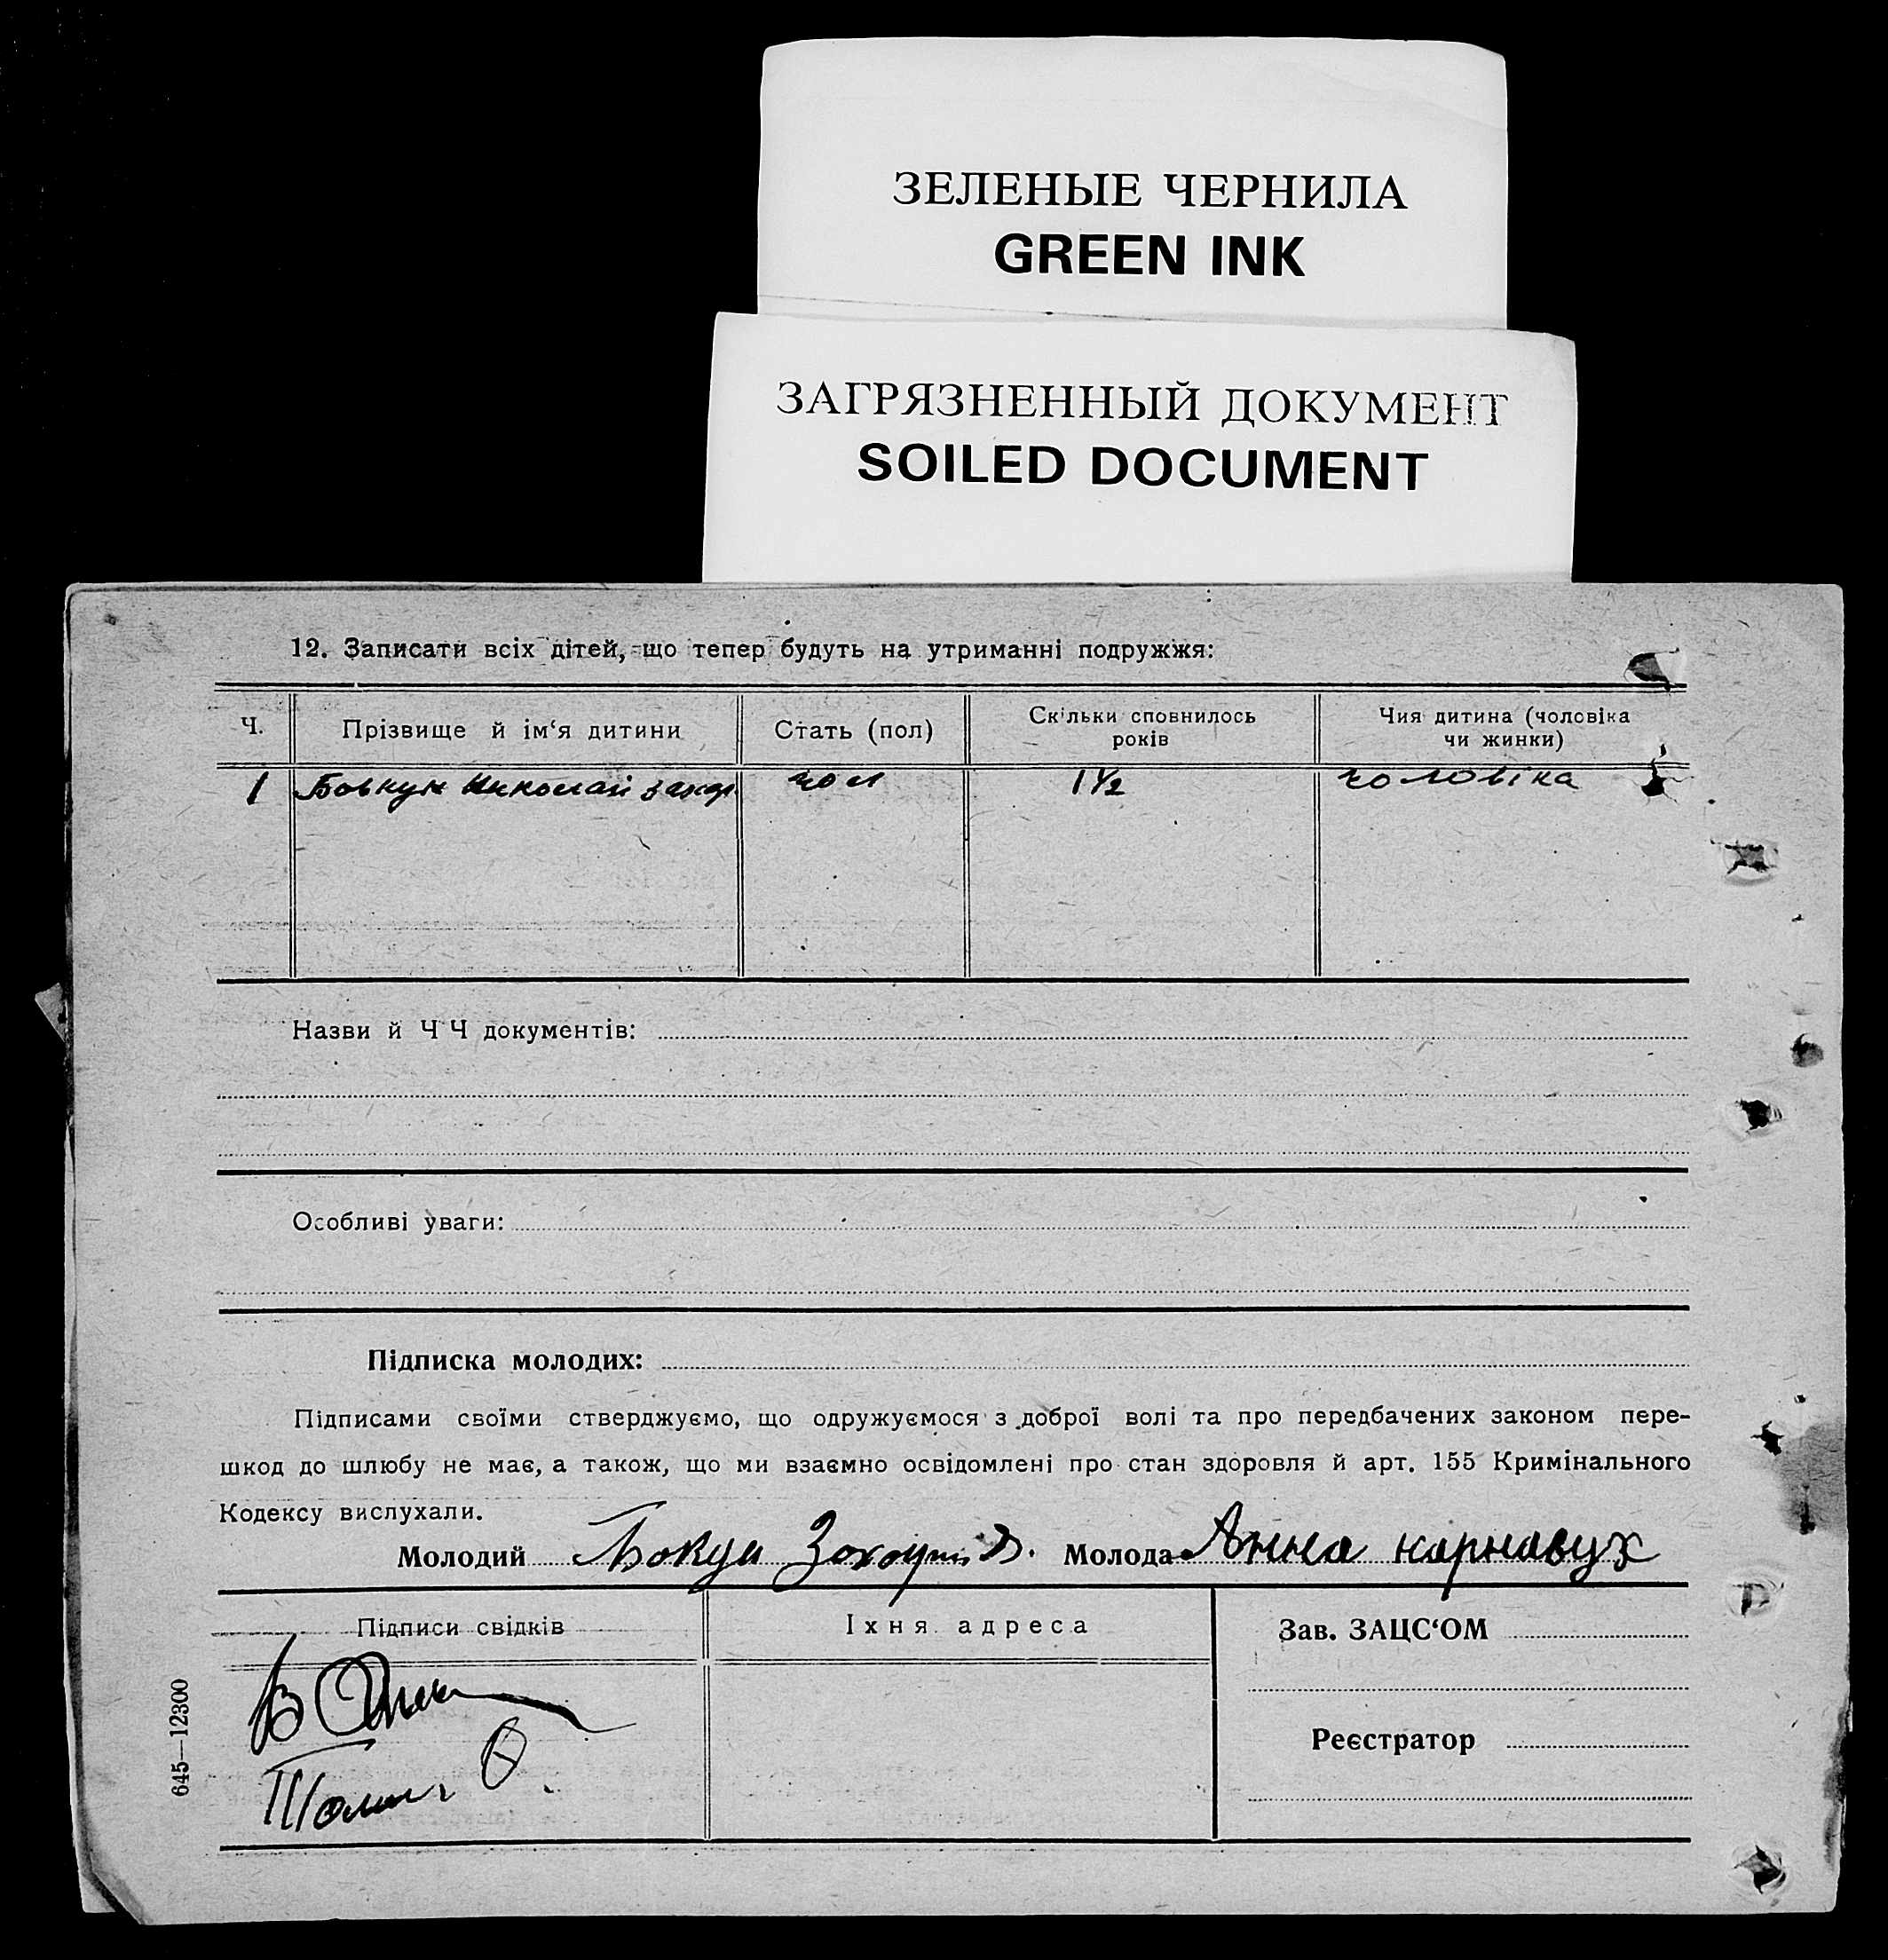 ЗЕЛЕНЫЕ ЧЕРНИЛА
GREEN INK
ЗАГРЯЗНЕННЫЙ ДОКУМЕНТ
SOILED DOCUMENT
12. Записати всіх дітей, що тепер будуть на утриманні подружжя:
Ч. Прізвище й ім‘я дитини Стать (пол) Скільки сповнилось років Чия дитина (чоловіка чи жинки)
1 Бовкун Николай Захар. чол 1½ чоловіка
Назви й Ч Ч документів:
Особливі уваги:
Підписка молодих:
Підписами своїми стверджуємо, що одружуємося з доброї волі та про передбачених законом пере-
шкод до шлюбу не має, а також, що ми взаємно освідомлені про стан здоровля й арт. 155 Кримінального
Кодексу вислухали.
Молодий Молода Анна карнавух
Підписи свідків Їхня адреса Зав. ЗАЦС‘ОМ
Реєстратор
645—12300